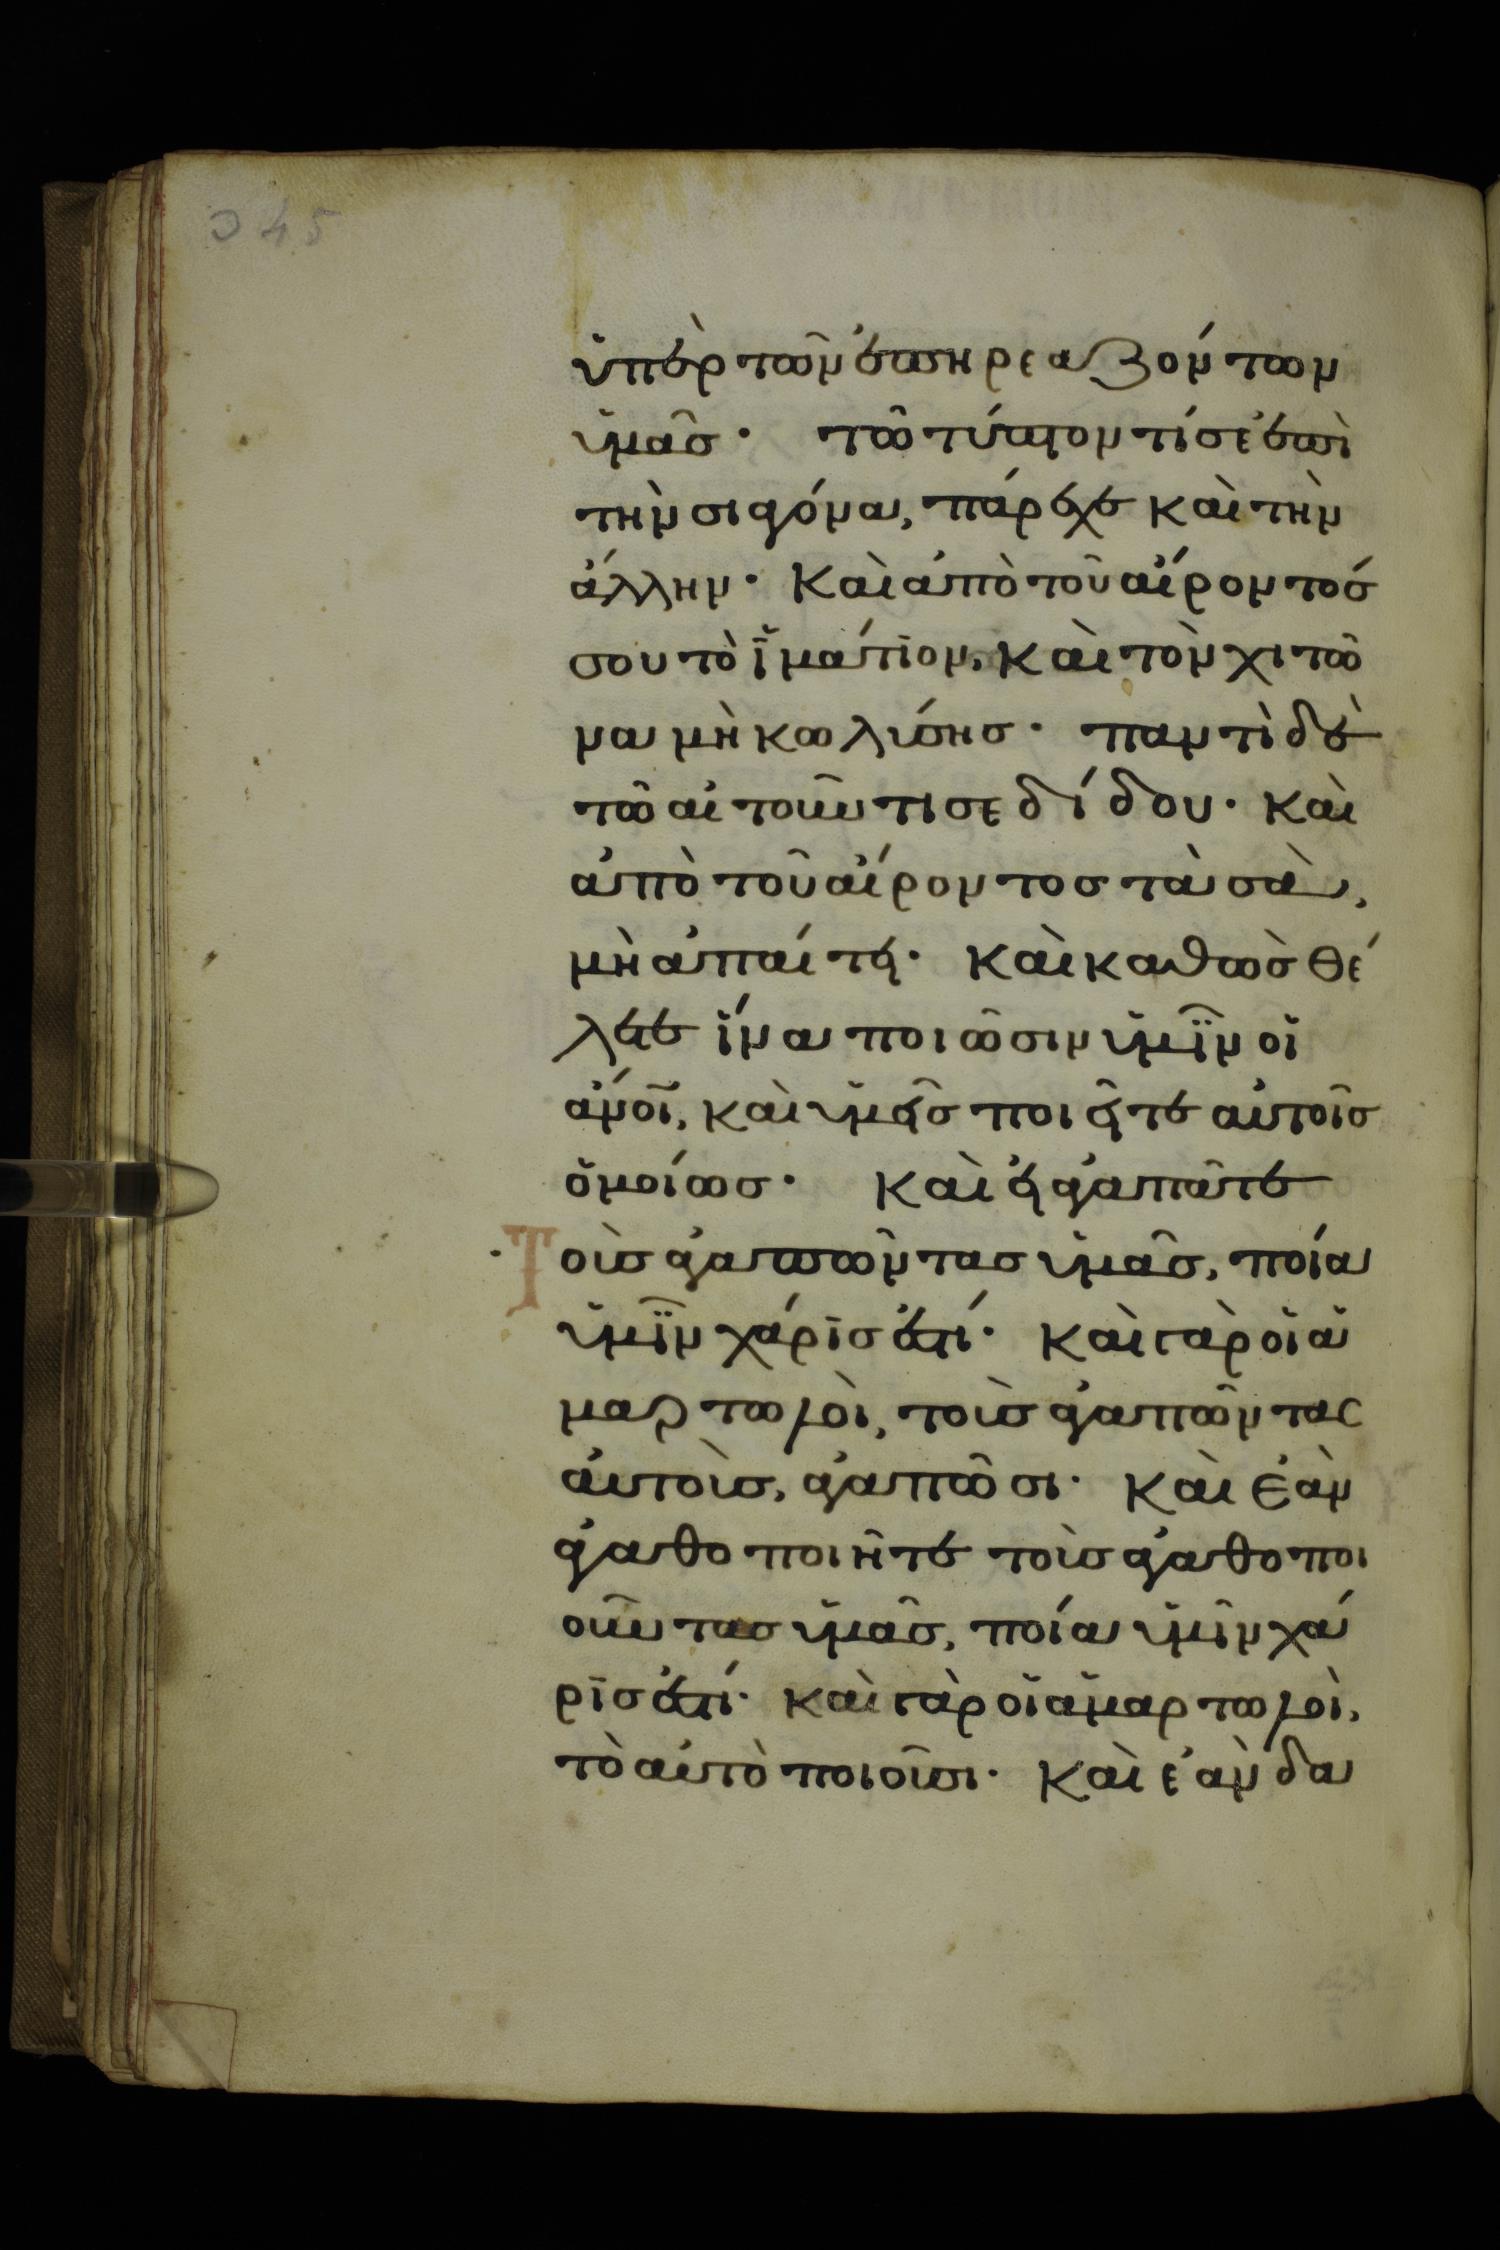 345
ὑπὲρ τῶν ἐπηρεαζόντων
ὑμᾶς· τῶ τύπτοντί σε ἐπὶ
τὴν σιαγόνα, πάρεχε καὶ τὴν
ἄλλην· καὶ ἀπὸ τοῦ αἴροντός
σου τὸ ἱμάτιον, καὶ τὸν χιτῶ
να μὴ κωλύσης· παντὶ δὲ
τῶ αἰτοῦντι σε δίδου· καὶ
ἀπὸ τοῦ αἴροντος τὰ σὰ,
μὴ ἀπαίτει· καὶ καθὼς θέ
λετε ἵνα ποιῶσιν ὑμῖν οἱ
ἄνοι, καὶ ὑμεῖς ποιεῖτε αὐτοῖς
ὁμοίως· καὶ εἰ ἀγαπᾶτε
Τοὺς ἀγαπῶντας ὑμᾶς, ποία
ὑμῖν χάρις ἐστί· καὶ γὰρ οἱ ἁ
μαρτωλοὶ, τοὺς ἀγαπῶντας
αὐτοὺς, ἀγαπῶσι· καὶ ἐὰν
ἀγαθοποιῆτε τοὺς ἀγαθοποι
οῦντας ὑμᾶς, ποία ὑμῖν χά
ρις ἐστί· καὶ γὰρ οἱ ἁμαρτωλοὶ,
τὸ αὐτὸ ποιοῦσι· καὶ ἐὰν δα